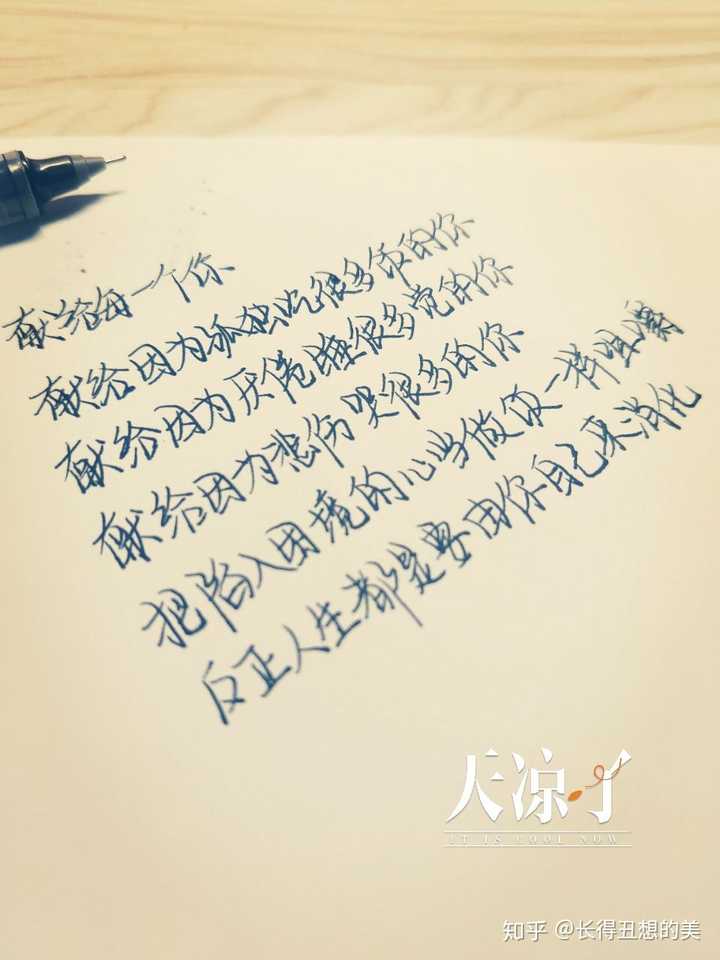 献给每一个你
献给因为孤独吃很多饭的你
献给因为厌倦睡很多觉的你
献给因为悲伤哭很多的你
把陷入困境的心当做饭一样咀嚼
反正人生都是要由你自己来消化
天凉了
IT IS COOL NOW
知乎 @长得丑想的美